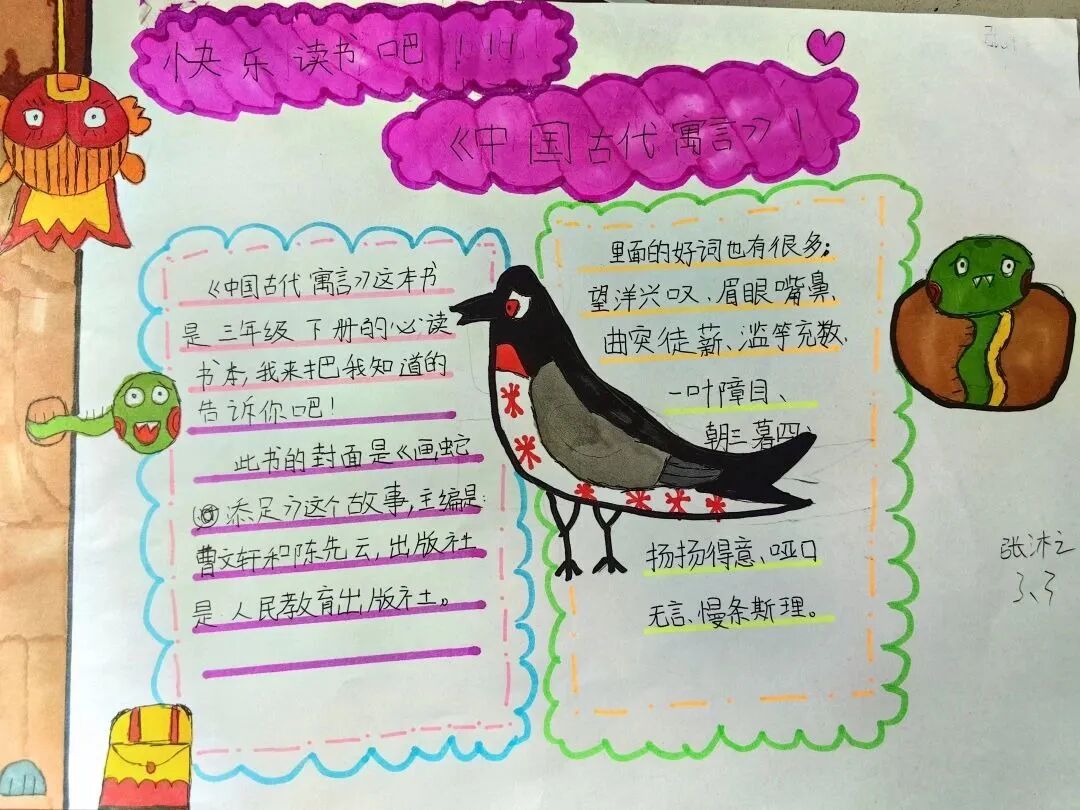 快乐读书吧!!!!
《中国古代寓言》!
《中国古代寓言》这本书
是三年级下册的必读
书本,我来把我知道的
告诉你吧!
此书的封面是《画蛇
添足》这个故事,主编是:
曹文轩和陈先云,出版社
是人民教育出版社。
里面的好词也有很多:
望洋兴叹、眉眼嘴鼻、
曲突徒薪、滥竽充数、
一叶障目、
朝三暮四、
扬扬得意、哑口
无言、慢条斯理。
3、3